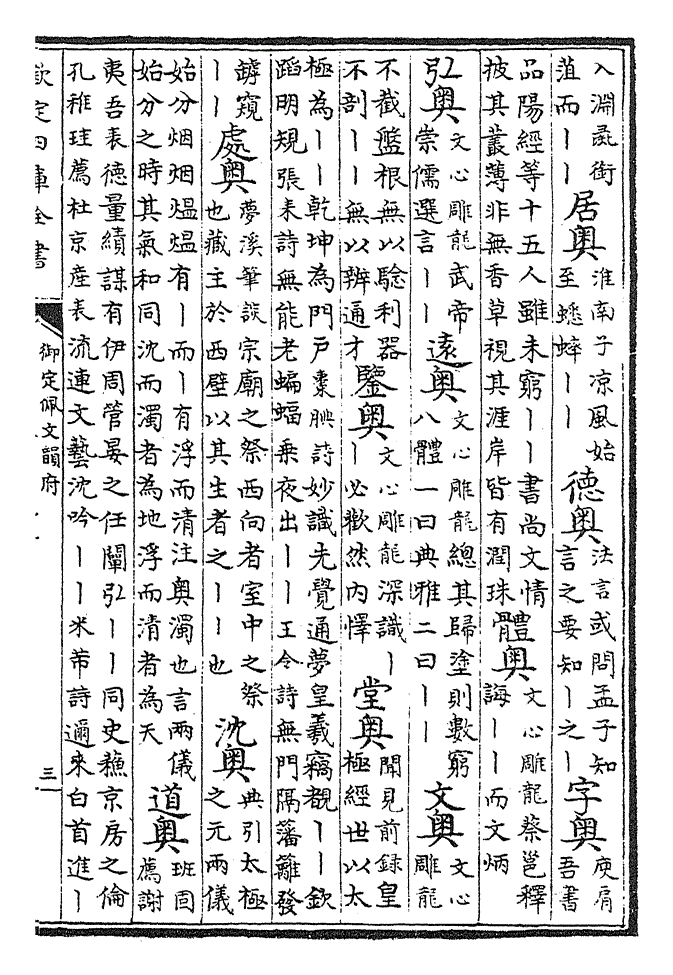 入淵彘銜
菹而丨丨
居奥
淮南子凉風始
至蟋蟀丨丨
德奥
法言或問孟子知
言之要知丨之丨
字奥
庾肩
吾書
品陽經等十五人雖未窮丨丨書尚文情
披其叢薄非無香草視其涯岸皆有潤珠
體奥
文心雕龍蔡邕釋
誨丨丨而文炳
弘奥
文心雕龍武帝
崇儒選言丨丨
遠奥
文心雕龍總其歸塗則數窮
八體一曰典雅二曰丨丨
文奥
文心
雕龍
不截盤根無以騐利器
不剖丨丨無以辨通才
鑒奥
文心雕龍深識丨
丨必歡然内懌
堂奥
聞見前録皇
極經世以太
極為丨丨乾坤為門戸棗腆詩妙識先覺通夢皇羲竊覩丨丨欽
蹈明規張耒詩無能老蝙蝠乗夜出丨丨王令詩無門隔藩籬發
罅窺
丨丨
處奥
夢溪筆談宗廟之祭西向者室中之祭
也藏主於西壁以其生者之丨丨也
沈奥
典引太極
之元兩儀
始分烟烟熅熅有丨而丨有浮而清注奥濁也言兩儀
始分之時其氣和同沈而濁者為地浮而清者為天
道奥
班固
薦謝
夷吾表德量績謀有伊周管晏之任闡弘丨丨同史蘇京房之倫
孔稚珪薦杜京産表流連文藝沈吟丨丨米芾詩邇来白首進丨
欽定四庫全書
御定佩文韻府
三